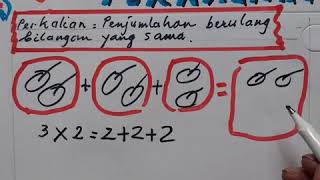 Perkalian = Penjumlahan berulang
bilangan yang sama.
+ + =
3 x 2 = 2+2+2